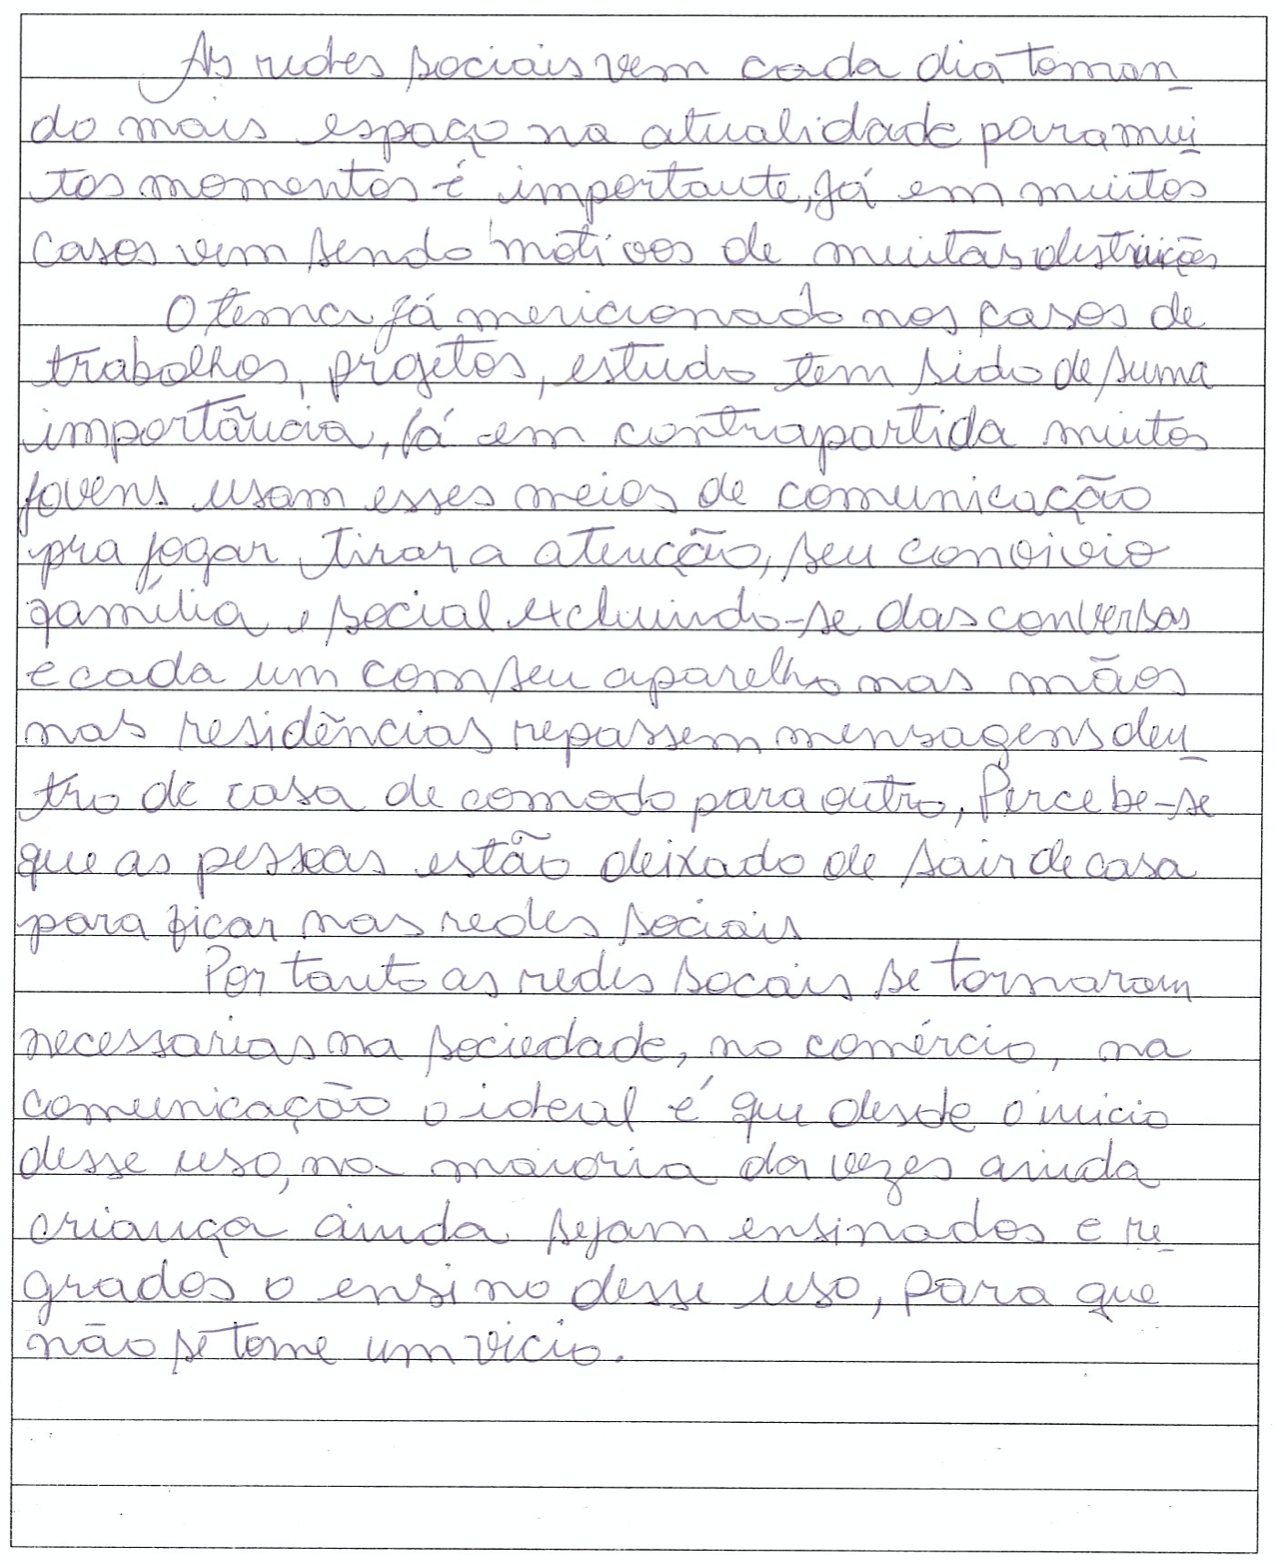 As redes sociais vem cada dia toman
do mais espaço na atualidade para mui
tos momentos é importante, já em muitos
casos vem sendo motivos de muitas destruições
O tema já mencionado nos casos de
trabalhos, projetos, estudo tem sido de suma
importância, já em contrapartida muitos
jovens usam esses meios de comunicação
pra jogar tirar a atenção, seu convivio
família e social excluindo-se das conversas
e cada um com seu aparelho nas mãos
nas residências repassem mensagens den
tro de casa de comodo para outro, Percebe-se
que as pessoas estão deixado de sair de casa
para ficar nas redes sociais
Portanto as redes socais se tornaram
necessarias na sociedade, no comércio, na
comunicação o ideal é que desde o inicio
desse uso, na maioria da vezes ainda
criança ainda sejam ensinados e re
grados o ensino desse uso, para que
não se torne um vicio.